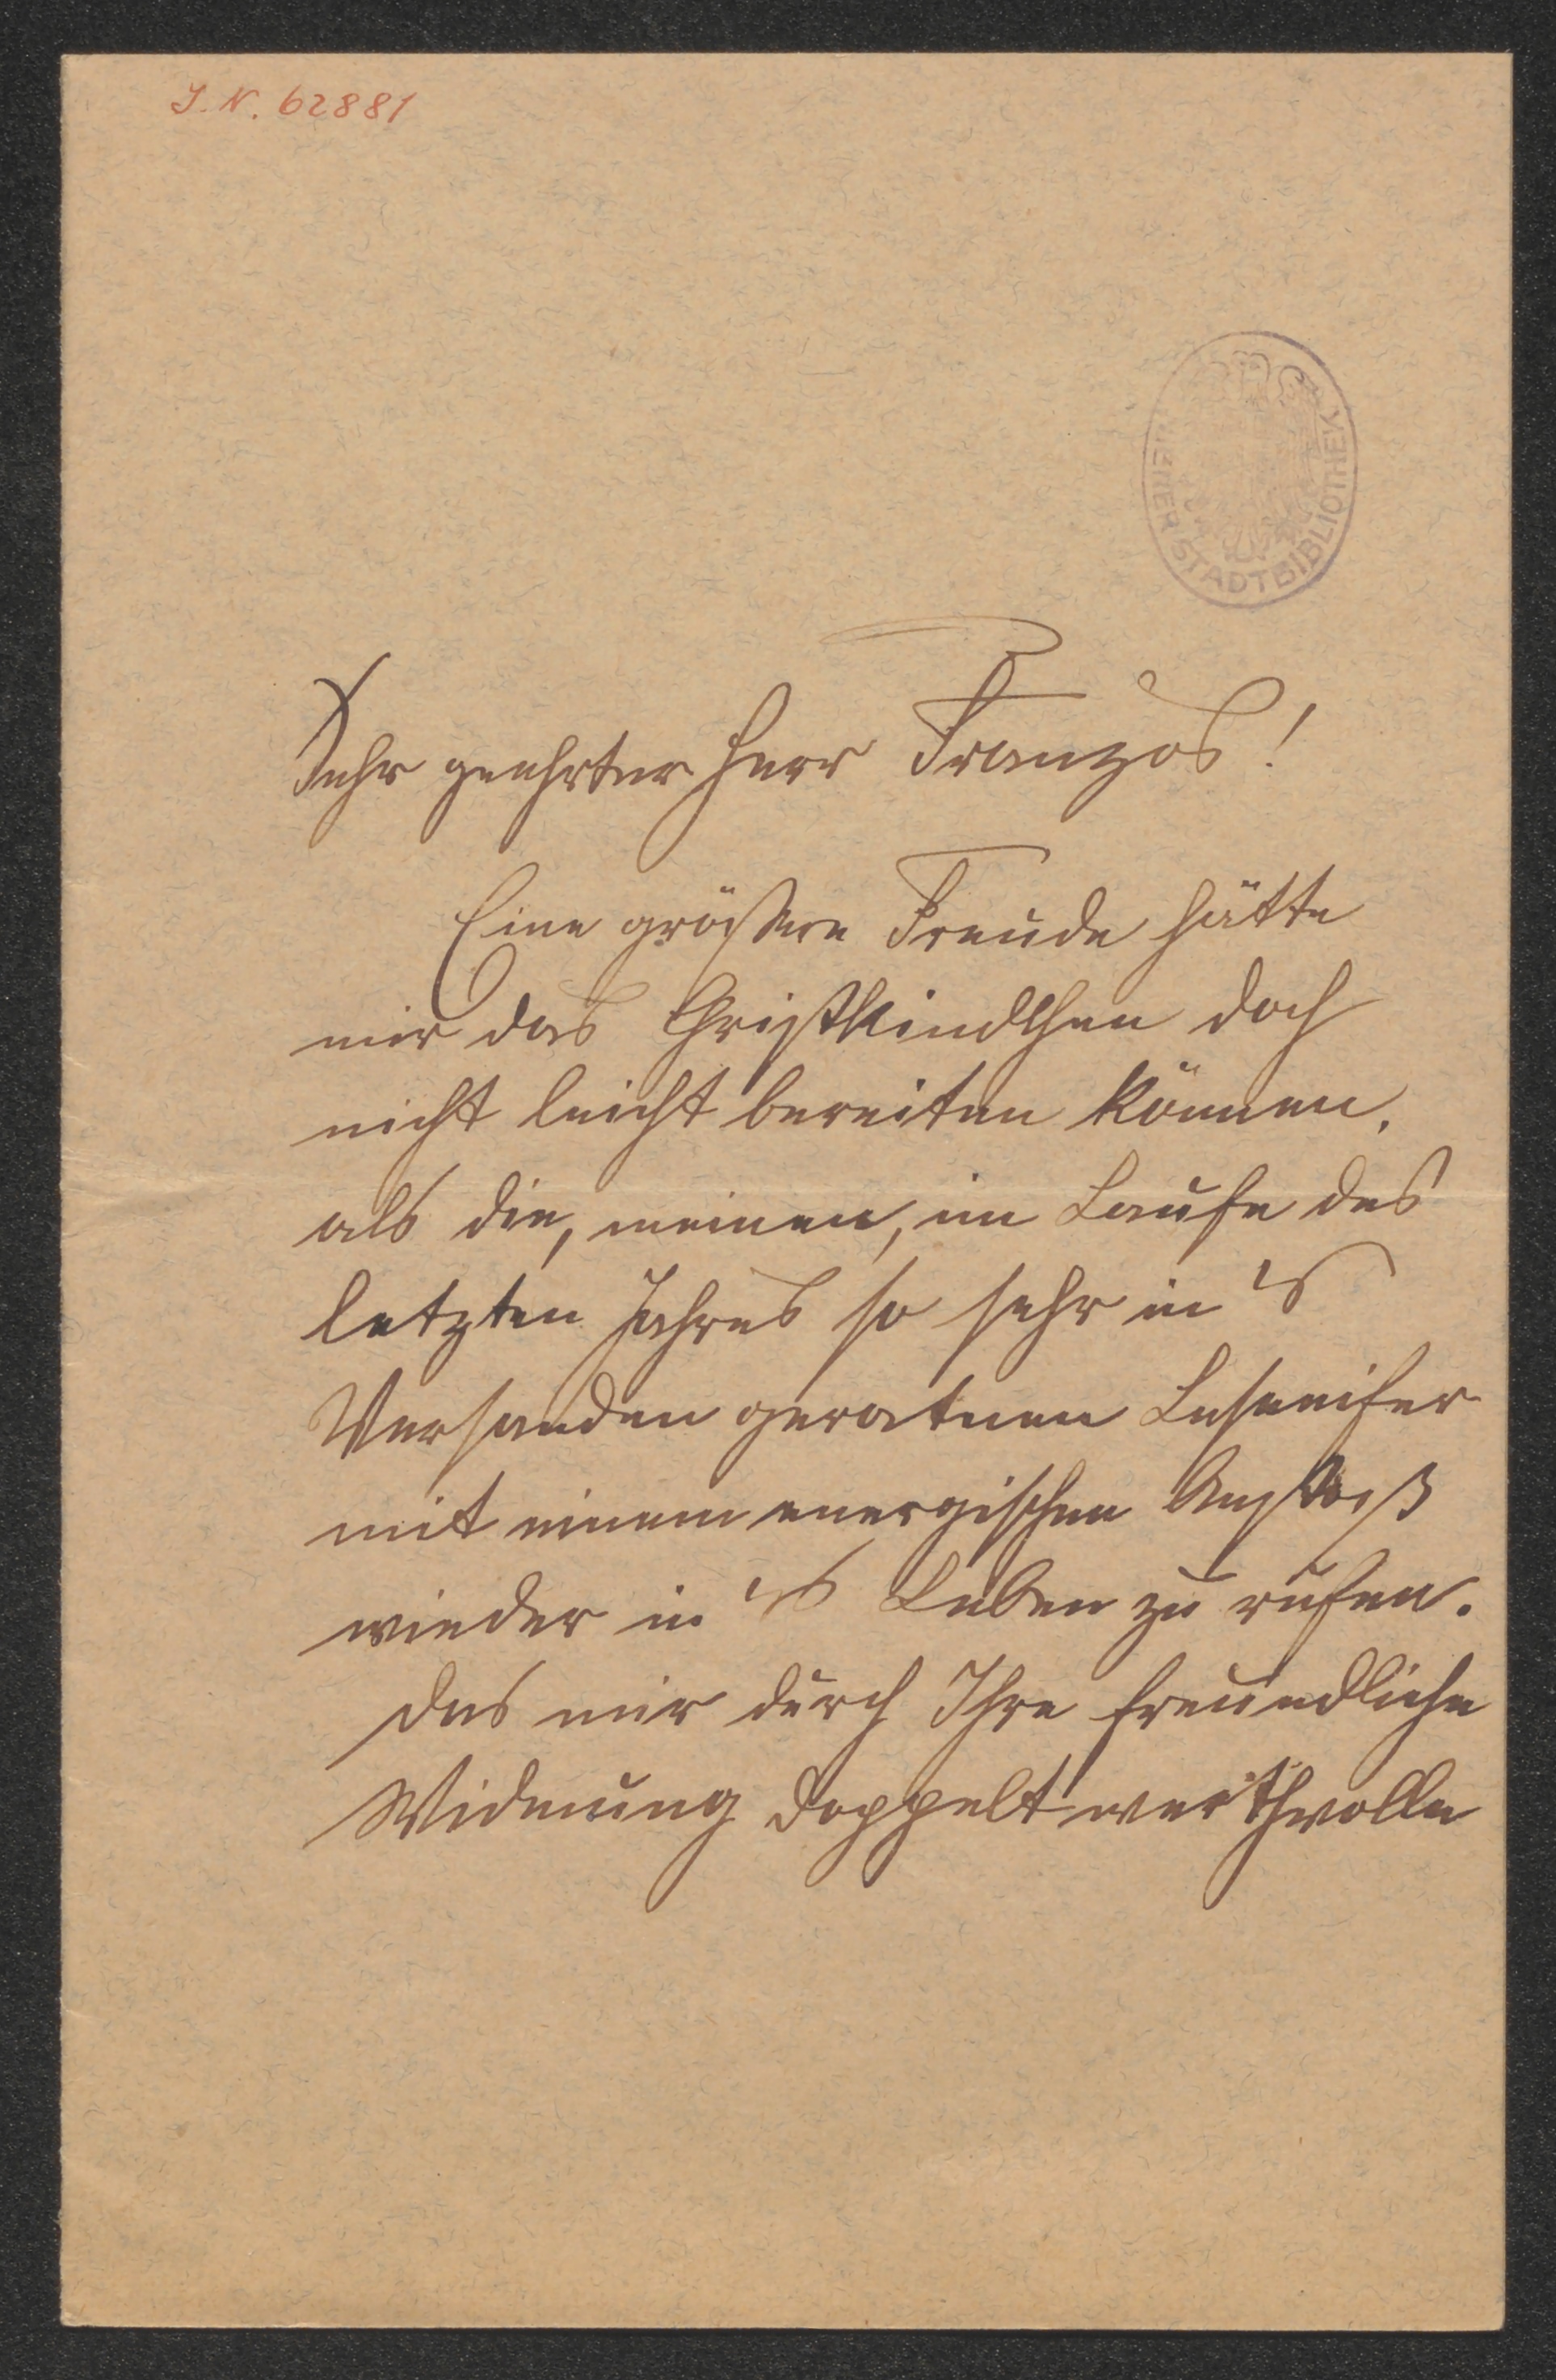 J. N. 62881
WIENER STADTBIBLIOTHEK
Sehr geehrter Herr Franzos!
Eine größere Freude hätte
mir das Christkindchen doch
nicht leicht bereiten können,
als die, meinen, im Laufe des
letzten Jahres so sehr in's
Versanden geratnen Leseeifer
mit einem energischen Anstoß
wieder in's Leben zu rufen.
Das mir durch Ihre freundliche
Widmung doppelt werthvolle